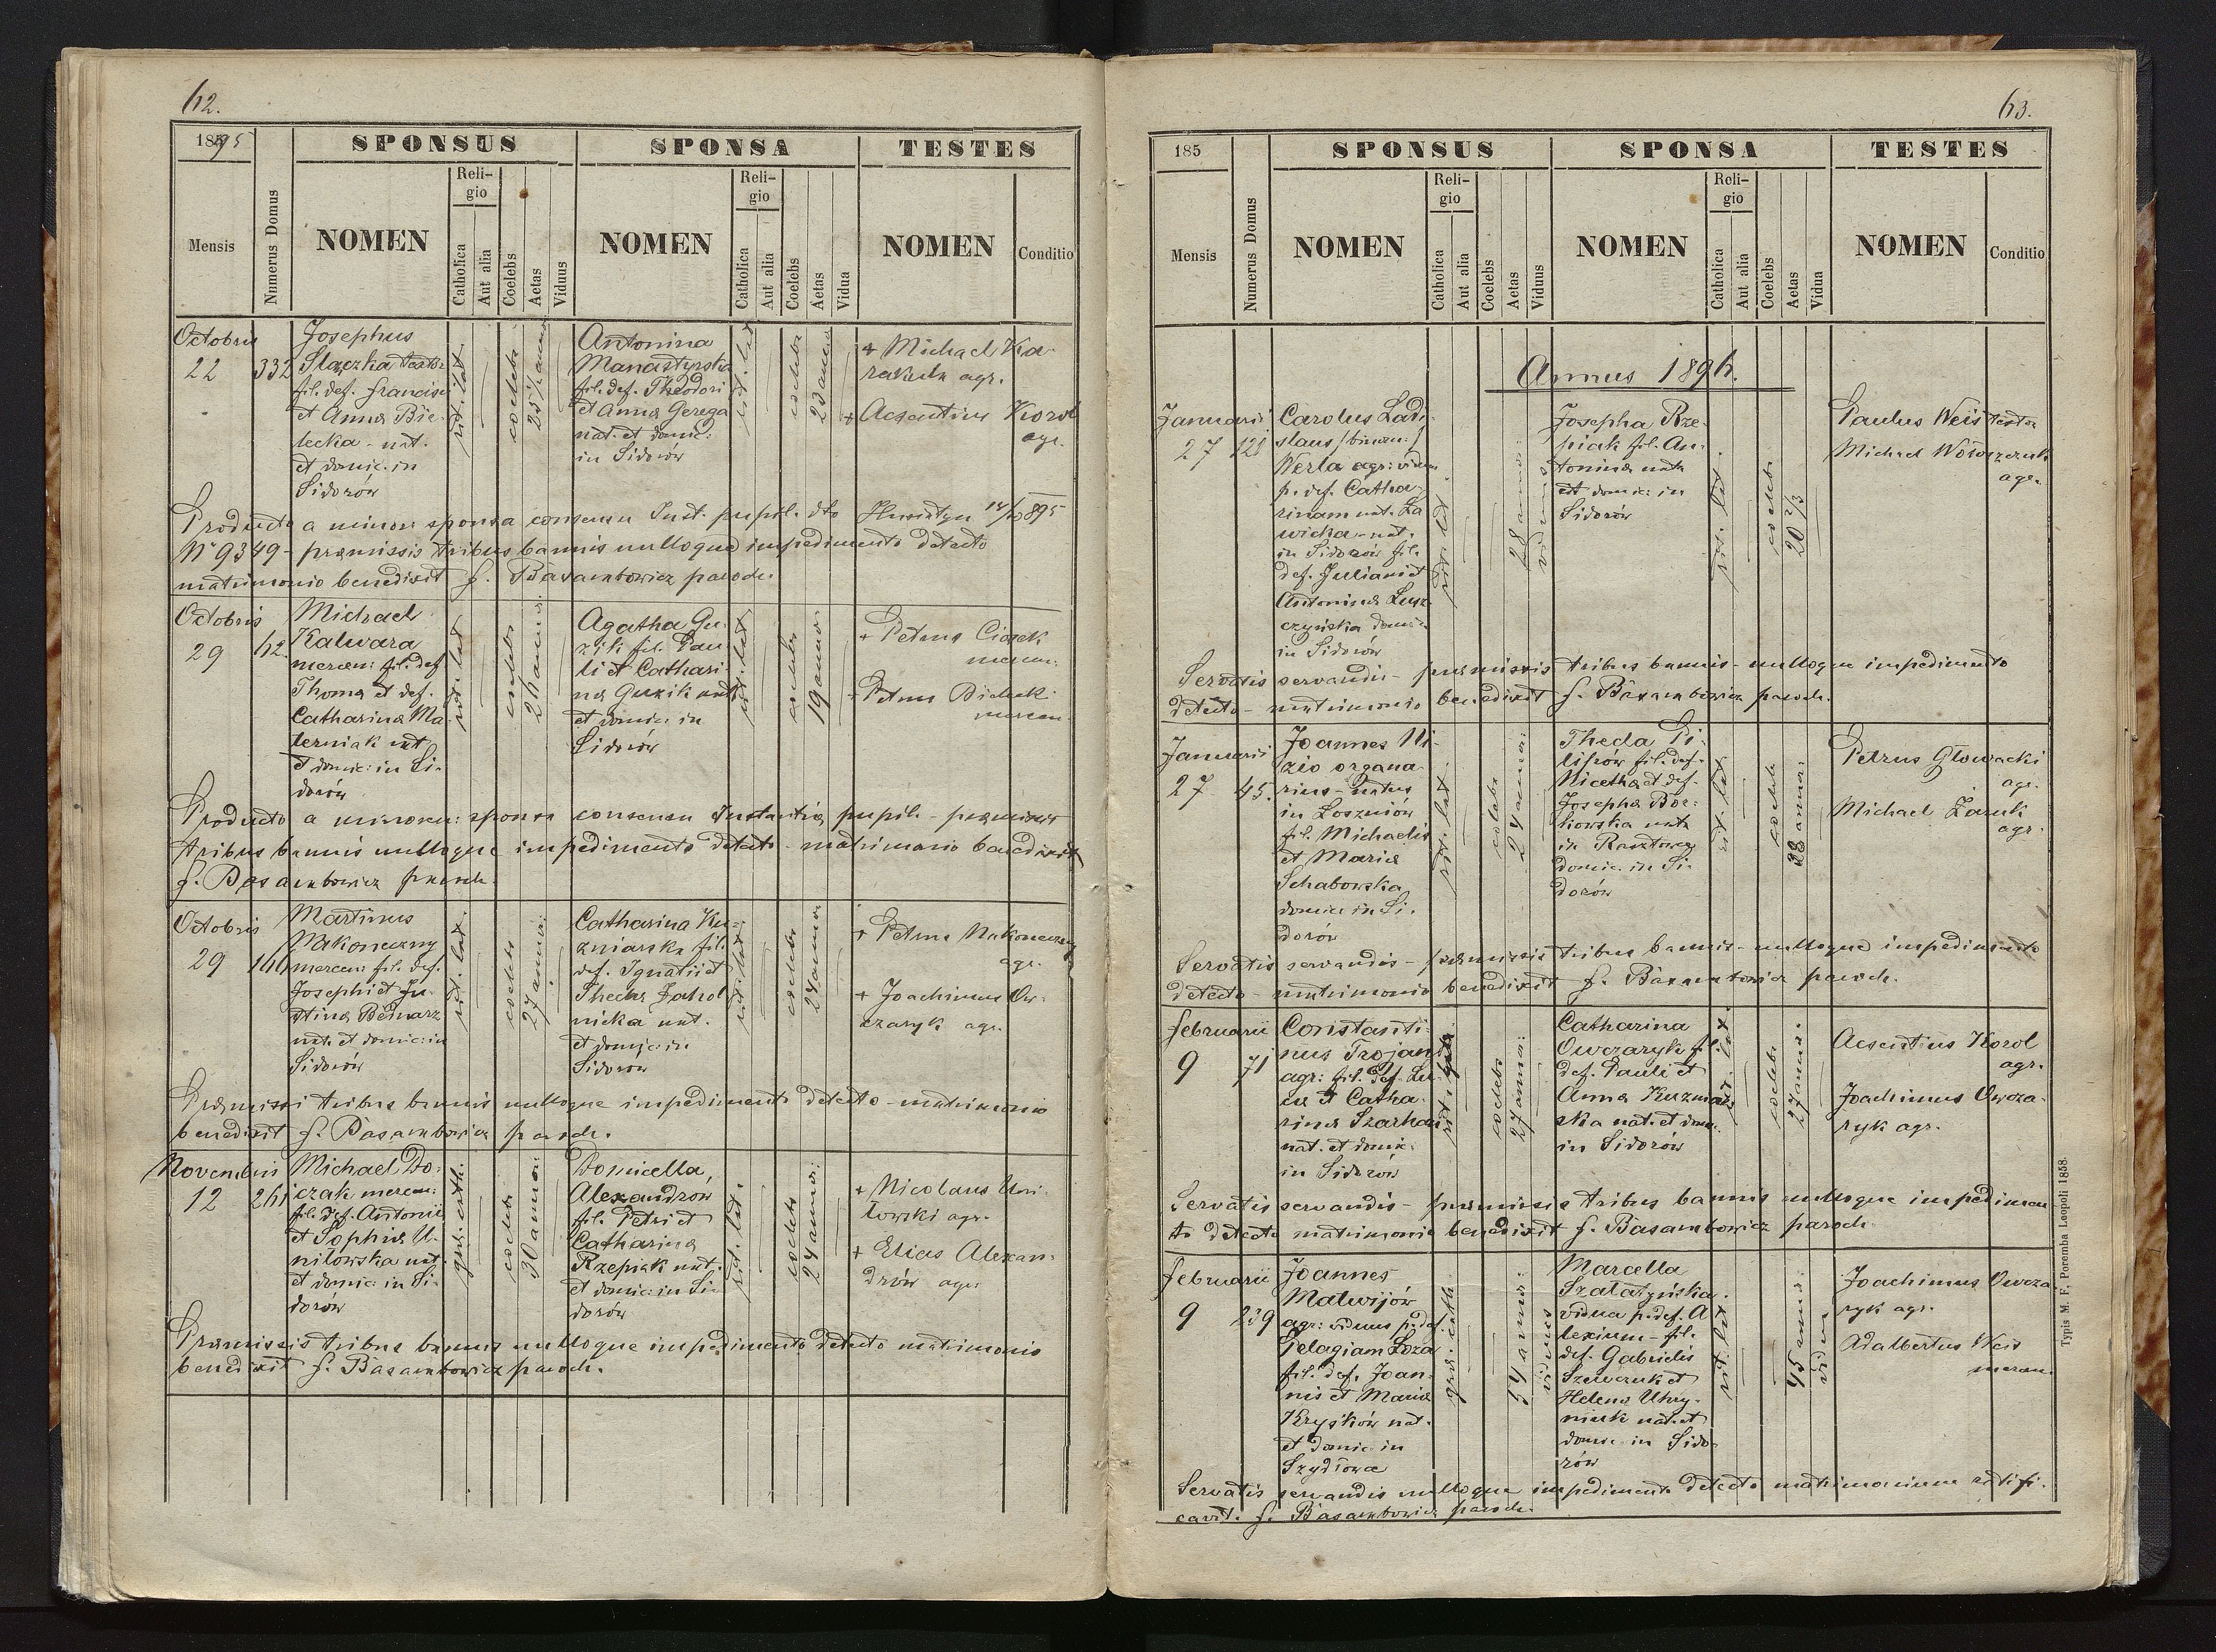 62.
1895
SPONSUS
SPONSA
TESTES
Mensis
Numerus Domus
NOMEN
Religio
Catholica
Aut alia
Coelebs
Aetas
Viduus
NOMEN
Religio
Catholica
Aut alia
Coelebs
Aetas
Vidua
NOMEN
Conditio
Octobris
22
332
Josephus
Slączka textor
fil. def. Francisci
et Anna Bie-
lecka - nat.
et domic. in
Sidorów
rit. lat.
coelebs
Antonina
Manastyrska
fil. def. Theodori
et Anna Gerega
nat. et domic:
in Sidorów
rit. lat
coelebs
23 annor
+ Michael Ka-
rakula agr.
+ Acsentius Korol
agr.
Producto a minore sponsa consensu Inst. pupil. dto Husiatyn 14/10 895
N° 9349 - præmissis tribus bannis nulloque impedimento detecto
matrimonio benedixit f. Basarabowicz paroch.
Octobris
29
62.
Michael
Kalwara
mercen: fil. def
Thoma et def.
Catharina Ma-
terniak nat
et domic: in Si-
dorów
rit. lat
coelebs
26 annor:
Agatha Gu-
zik fil. Pau-
li et Cathari-
na Guzik nat
et domic: in
Sidorów
rit. lat
coelebs
19 annor
+ Petrus Ciosek
mercen:
+ Petrus Bielecki
mercen.
Producto a minoren: sponsa consensu Instantia pupil. - præmissis
tribus bannis nulloque impedimento detecto - matrimonio benedixit
f. Basarabowicz paroch.
Octobris
29
146
Martinus
Nakoneczny
mercen: fil. def.
Josephi et Ju-
stina Bednarz
nat. et domic: in
Sidorów
rit. lat.
coelebs
27 annor:
Catharina Ku-
zniarska fil.
def. Ignatii et
Thecla Jahol
nicka nat.
et domic: in
Sidorów
rit. lat
coelebs
24 annor
+ Petrus Nakoneczny
agr.
+ Joachimus Ow-
czaryk agr.
Præmissi tribus bannis nulloque impedimento detecto - matrimonio
benedixit f. Basarabowicz paroch.
Novembris
12
261
Michael Do-
czak mercen:
fil. def. Antonii
et Sophia U-
nilowska nat.
et domic: in Si-
dorów
gr. cath.
coelebs
30 annor:
Domicella
Alexandrów
fil. Petri et
Catharina
Rzepiak nat.
et domic: in Si-
dorów
rit. lat.
coelebs
24 annor:
+ Nicolaus Uni-
lowski agr.
+ Elias Alexan-
drów agr.
Præmissis tribus bannis nulloque impedimento detecto matrimonio
benedixit f. Basarabowicz paroch.
63.
185
SPONSUS
SPONSA
TESTES
Mensis
Numerus Domus
NOMEN
Religio
Catholica
Aut alia
Coelebs
Aetas
Viduus
NOMEN
Religio
Catholica
Aut alia
Coelebs
Aetas
Vidua
NOMEN
Conditio
Annus 1896.
Januarii
27
128
Carolus Ladi-
slaus (binom:)
Werla agr: viduus
p. def. Catha-
rinam nat. La
wicka - nat.
in Sidorów fil.
def. Juliani et
Antonina Lusz-
czyńska domic
in Sidorów
rit. lat
28 annor.
viduus
Josepha Rze-
piak fil. An-
tonina nata
et domic: in
Sidorów
rit. lat.
coelebs
20 2/3
Paulus Weis textor
Michael Wowczuk
agr.
Servatis servandis - præmissis tribus bannis - nulloque impedimento
detecto - matrimonio benedixit f. Basarabowicz paroch.
Januarii
27
45.
Joannes Ni-
zio organa-
rius - natus
in Loszniów
fil. Michaelis
et Maria
Schabowska
domic: in Si-
dorów
rit. lat.
coelebs
24 annor:
Thecla Pi-
lipów fil. def.
Niceta et def.
Josepha Bor-
kowska nata
in Rasztowce
domic. in Si-
dorów
rit. lat
coelebs
28 annor:
Petrus Głowacki
agr.
Michael Zaruk
agr.
Servatis servandis - præmissis tribus bannis - nulloque impedimento
detecto - matrimonio benedixit f. Basarabowicz paroch.
Februarii
9
71
Constanti-
nus Trojan
agr: fil. def. Lu-
ca et Catha-
rina Szarha
nat. et domic.
in Sidorów
coelebs
27 annor:
Catharina
Owczaryk fil.
def. Pauli et
Anna Kuzmań
ska nat. et domic.
in Sidorów
rit. lat.
coelebs
27 annor.
Acsentius Korol
agr.
Joachimus Owcza-
ryk agr.
Servatis servandis - præmissis tribus bannis nulloque impedimen
to detecto matrimonio benedixit f. Basarabowicz paroch.
Februarii
9
239
Joannes
Matwijów
agr: viduus p. def.
Pelagiam Łoza
fil. def. Joan-
nis et Maria
Kryśków nat.
et domic in
Szydłowce
gr. cath.
54 annor:
viduus
Marcella
Szałatyńska
vidua p. def. A-
lexium - fil.
def. Gabrielis
Szewczuk et
Helena Uhry-
niuk nat. et
domic in Sido-
rów
rit. lat
45 annor:
vidua
Joachimus Owcza-
ryk agr.
Adalbertus Weis
mercen
Servatis servandis nulloque impedimento detecto matrimonium ratifi-
cavit. f. Basarabowicz paroch.
Typis M. F. Poremba Leopoli 1858.